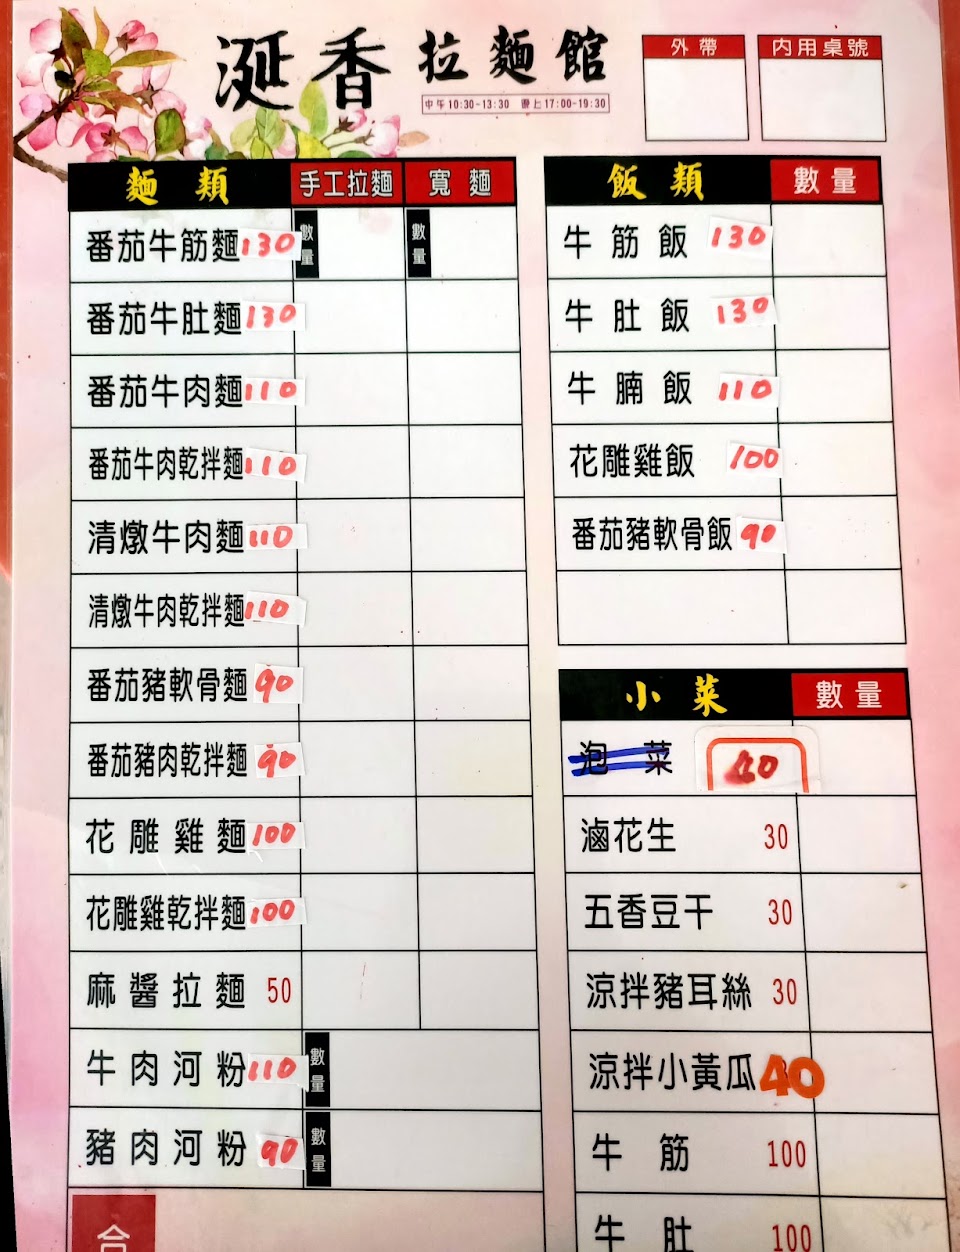 涎香拉麵館
中午10:30-13:30 晚上17:00-19:30
外帶
內用桌號
麵類 手工拉麵 寬麵
番茄牛筋麵 130 數量 數量
番茄牛肚麵 130
番茄牛肉麵 110
番茄牛肉乾拌麵 110
清燉牛肉麵 110
清燉牛肉乾拌麵 110
番茄豬軟骨麵 90
番茄豬肉乾拌麵 90
花雕雞麵 100
花雕雞乾拌麵 100
麻醬拉麵 50
牛肉河粉 110 數量
豬肉河粉 90 數量
合
飯類 數量
牛筋飯 130
牛肚飯 130
牛腩飯 110
花雕雞飯 100
番茄豬軟骨飯 90
小菜 數量
泡菜 40
滷花生 30
五香豆干 30
涼拌豬耳絲 30
涼拌小黃瓜 40
牛筋 100
牛肚 100